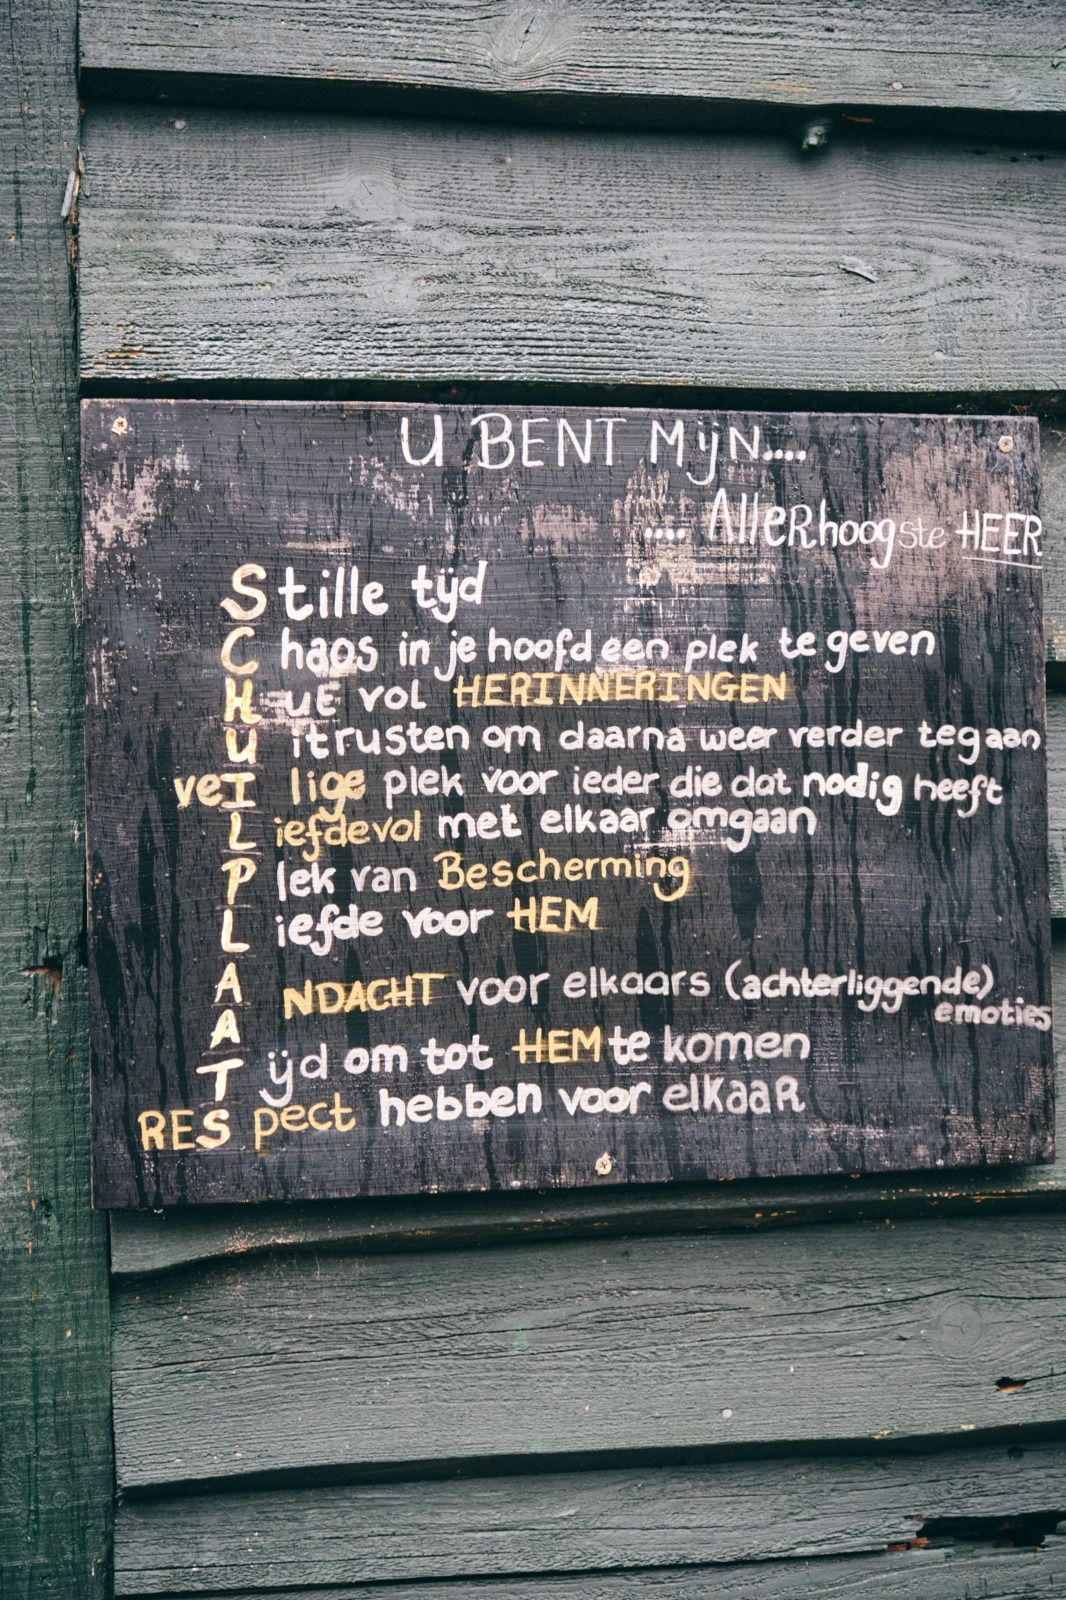 U BENT MijN....
.... AlleRhoogste HEER
Stille tijd
Chaos in je hoofd een plek te geven
HUE vol HERINNERINGEN
Uitrusten om daarna weer verder te gaan
veIlige plek voor ieder die dat nodig heeft
Liefdevol met elkaar omgaan
Plek van Bescherming
Liefde voor HEM
A
ANDACHT voor elkaars (achterliggende)
emoties
Tijd om tot HEM te komen
RESpect hebben voor elkaaR